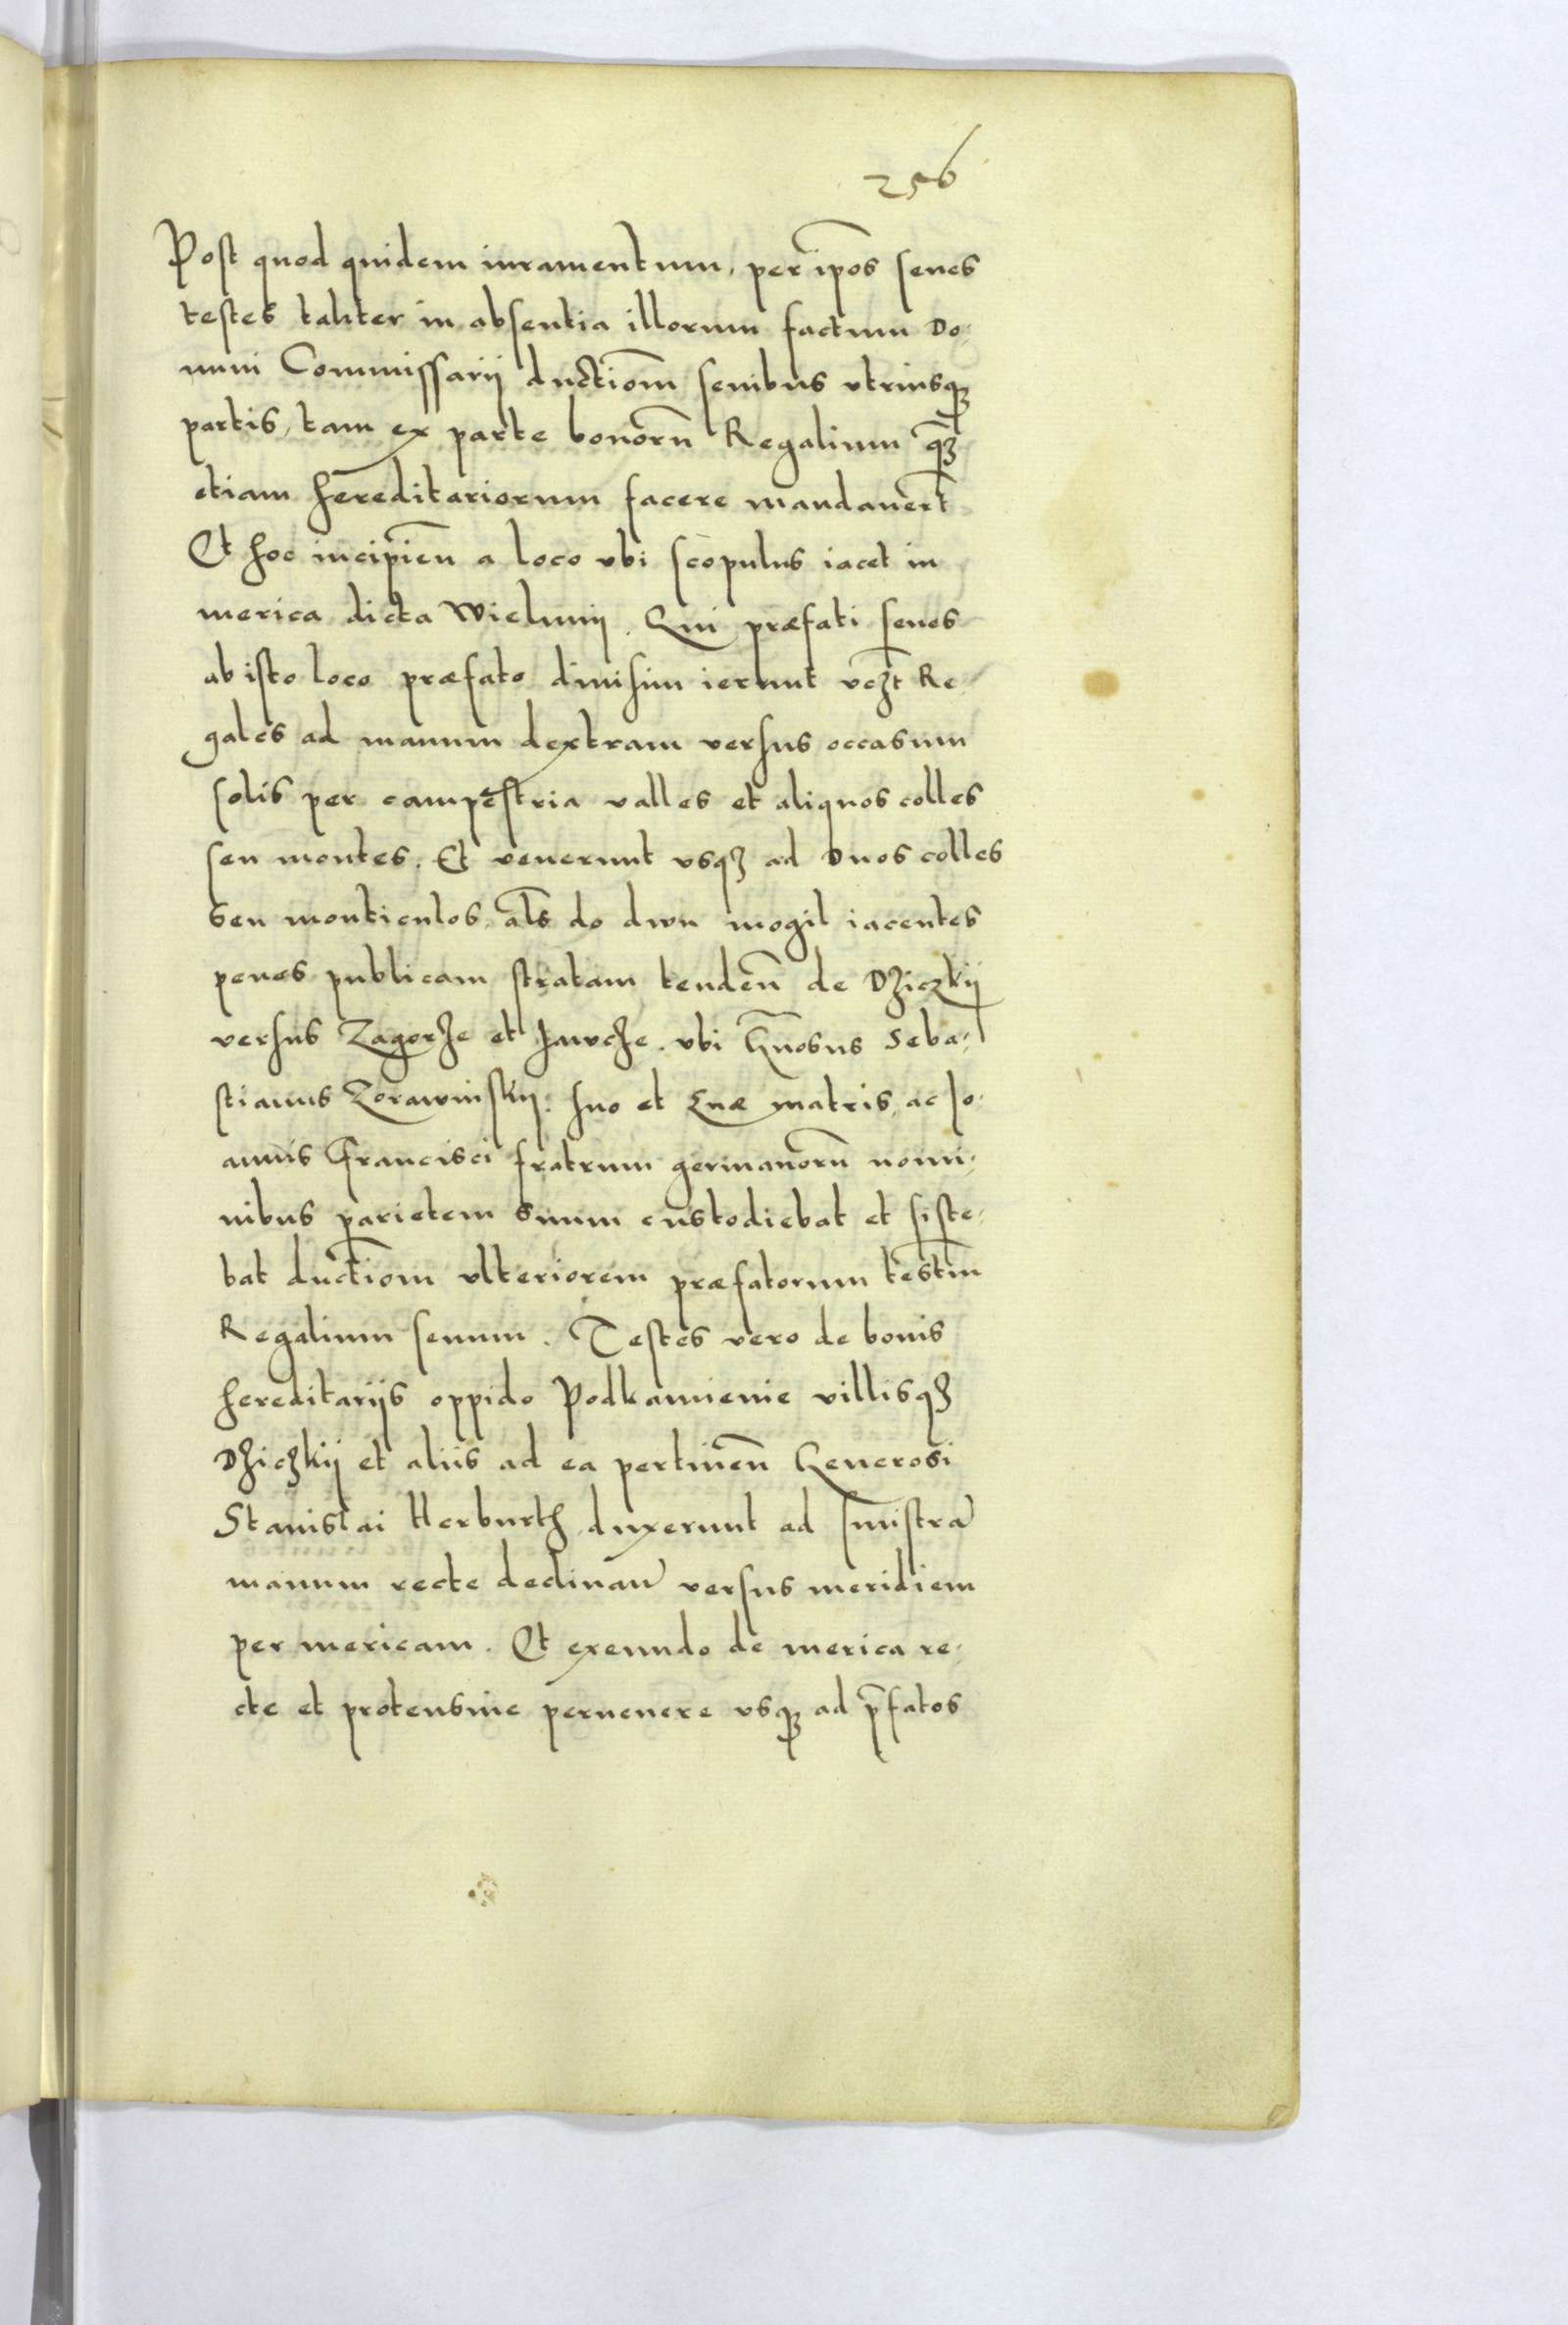 256
Post quod quidem iuramentum, per ip̃os senes
testes taliter in absentia illorum factum Do-
mini Commissarij ductiom̃ senibus vtriusqꝫ
partis, tam ex parte bonorũ Regalium q̃ꝫ
etiam hereditariorum facere mandauer̃t
Et hoc incipieñ a loco vbi scopulus iacet in
merica dicta Wielunij. Qui præfati senes
ab isto loco præfato diuisim ierunt vcꝫt Re-
gales ad manum dextram versus occasum
solis per campestria valles et aliquos colles
seu montes. Et venerunt vsqꝫ ad Duos colles
seu monticulos, al̃s do dwu mogil iacentes
penes publicam stratam tendeñ de Dziczkij
versus Zagorze et Jawcze. vbi G̃nosus Seba-
stianus Zorawinskij. suo et suæ matris, ac Jo-
annis Francisci fratrum germanorũ nomi-
nibus parietem suum custodiebat et siste-
bat ductiom̃ vlteriorem præfatorum testiũm
Regalium senum. Testes vero de bonis
hereditarijs oppido Podkamienie villisqꝫ
Dziczkij et aliis ad ea pertineñ Generosi
Stanislai Herburth duxerunt ad sinistrã
manum recte declinañ versus meridiem
per mericam. Et exeundo de merica re-
cte et protensiue peruenere vsqꝫ ad p̃fatos